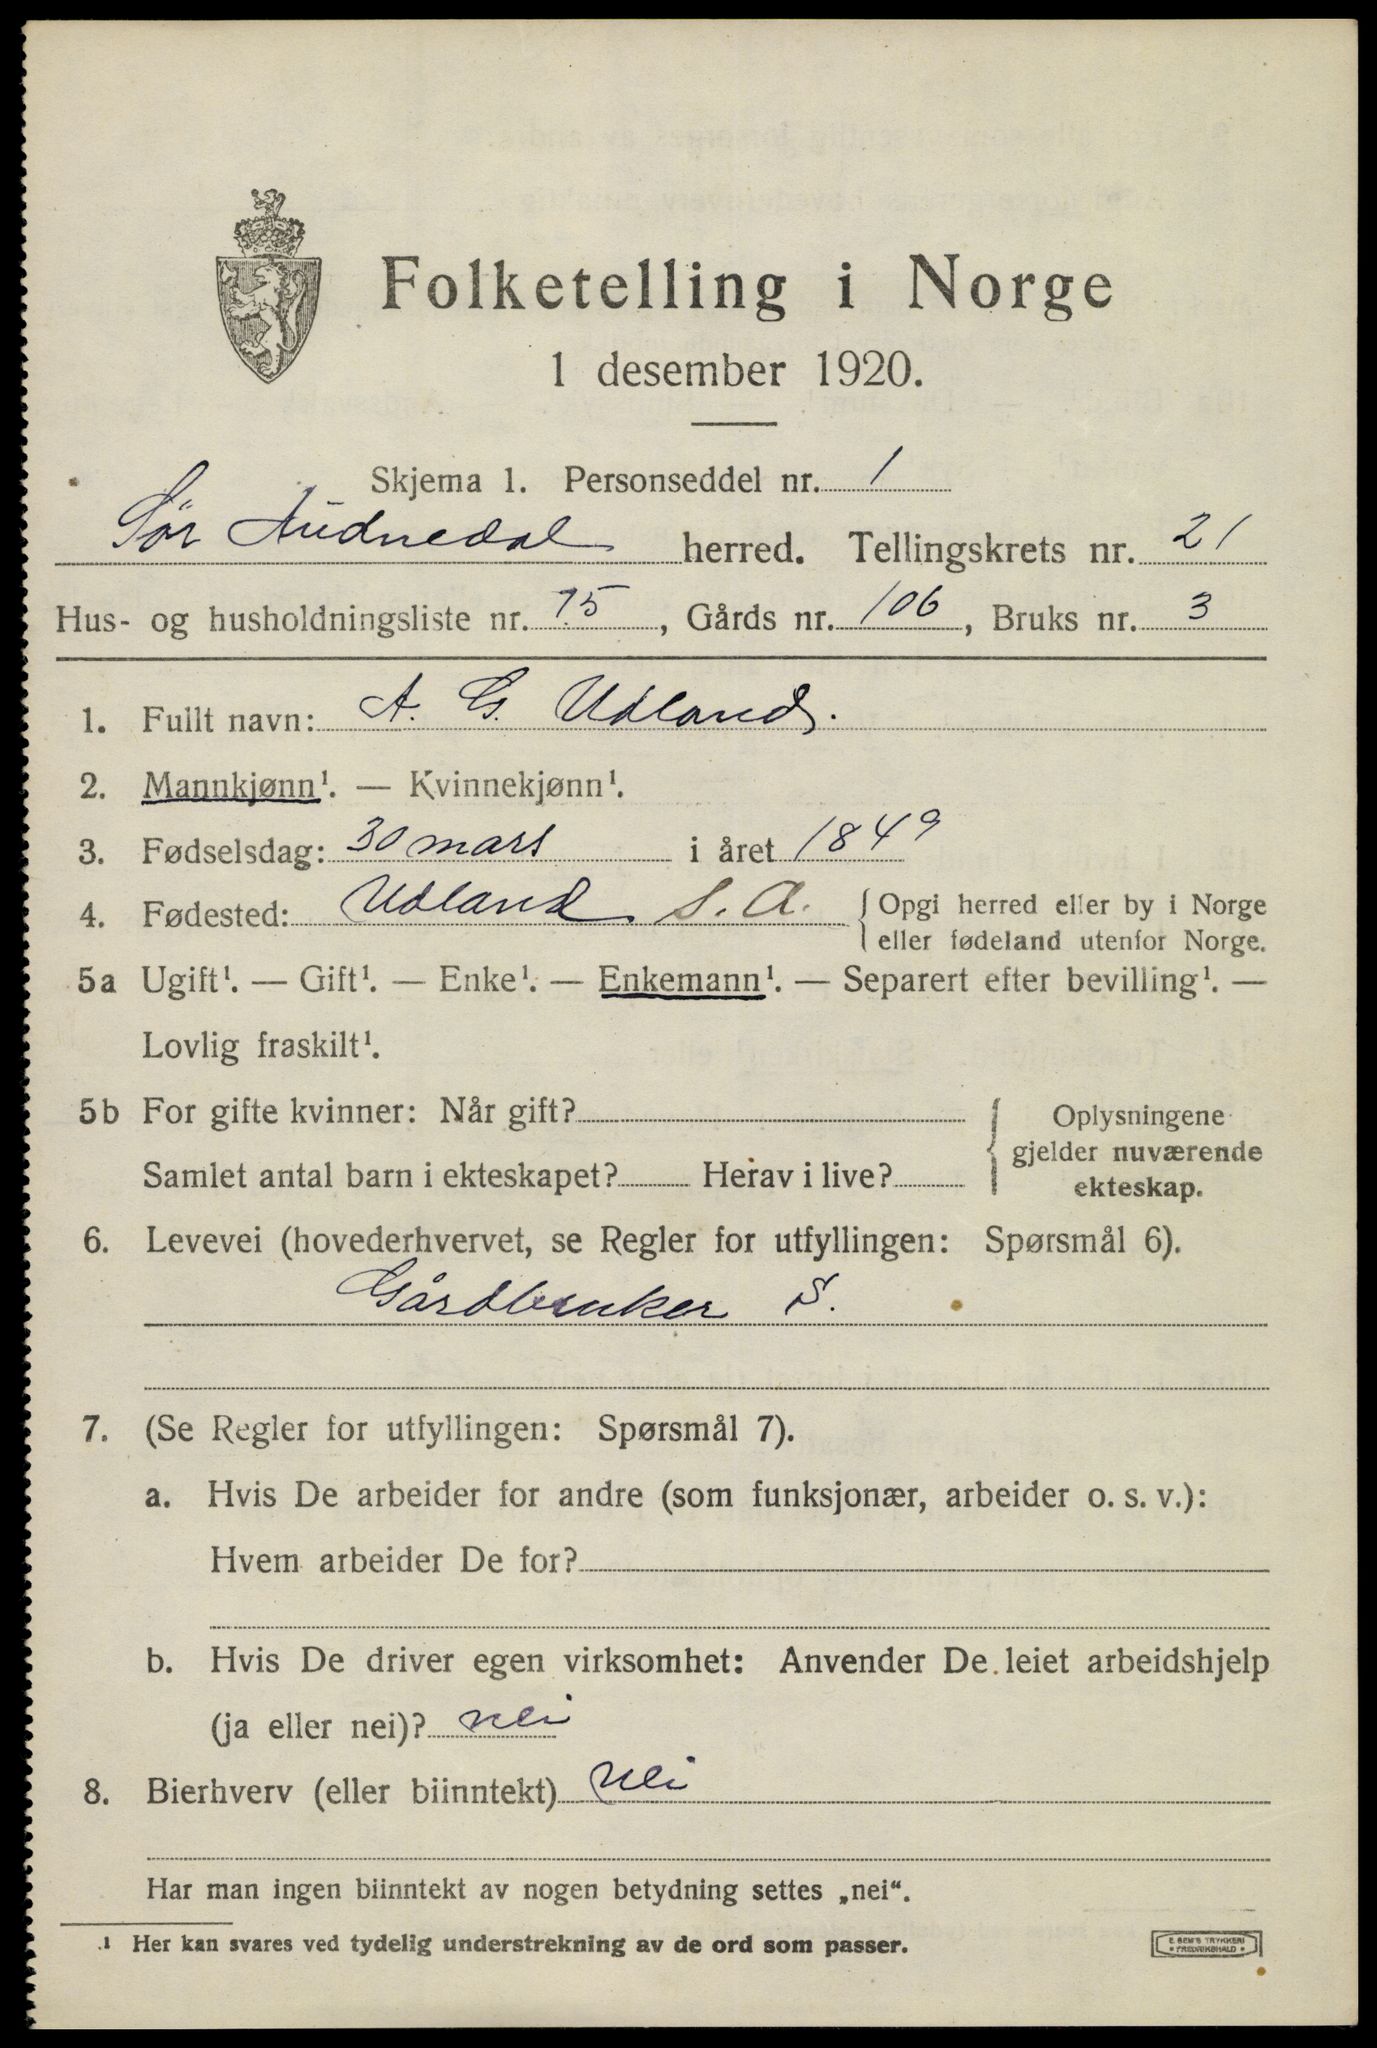 Folketelling i Norge
1 desember 1920.
Skjema 1. Personseddel nr. 1
Sør Audnedal herred. Tellingskrets nr. 21
Hus- og husholdningsliste nr. 15, Gårds nr. 106, Bruks nr. 3
1. Fullt navn: A. G. Udland.
2. Mannkjønn¹. — Kvinnekjønn¹.
3. Fødselsdag: 30 mars i året 1849
4. Fødested: Udland S. A. { Opgi herred eller by i Norge
eller fødeland utenfor Norge.
5a Ugift¹. — Gift¹. — Enke¹. — Enkemann¹. — Separert efter bevilling¹. —
Lovlig fraskilt¹.
5b For gifte kvinner: Når gift? { Oplysningene
gjelder nuværende
Samlet antal barn i ekteskapet? Herav i live? ekteskap.
6. Levevei (hovederhvervet, se Regler for utfyllingen: Spørsmål 6).
Gårdbruker S.
7. (Se Regler for utfyllingen: Spørsmål 7).
a. Hvis De arbeider for andre (som funksjonær, arbeider o. s. v.):
Hvem arbeider De for?
b. Hvis De driver egen virksomhet: Anvender De leiet arbeidshjelp
(ja eller nei)? nei
8. Bierhverv (eller biinntekt) Nei
Har man ingen biinntekt av nogen betydning settes „nei“.
¹ Her kan svares ved tydelig understrekning av de ord som passer.
E. SEM'S TRYKKERI
FREDRIKSHALD